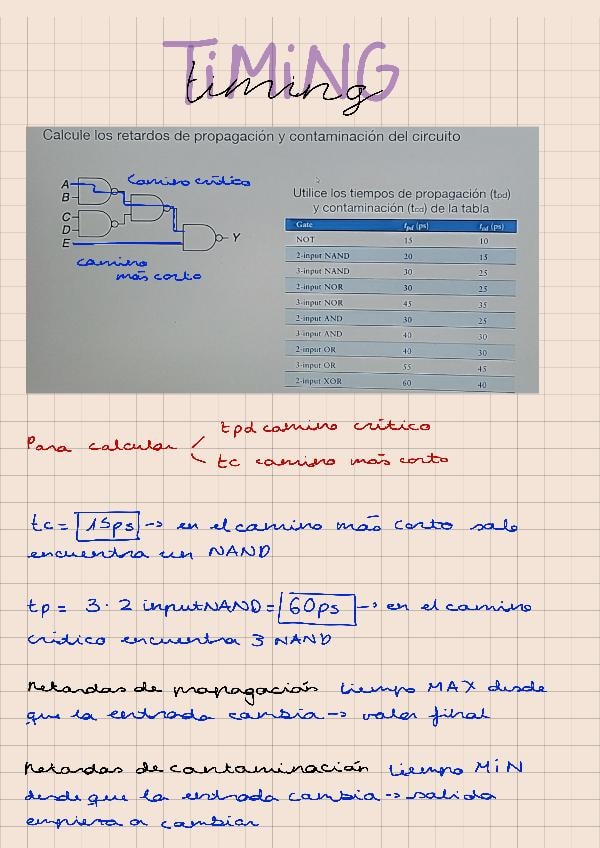 TiMiNG
timing
Calcule los retardos de propagación y contaminación del circuito
camino crítico
A
B
C
D
E
Y
camino
más corto
Utilice los tiempos de propagación (tpd)
y contaminación (tcd) de la tabla
Gate tpd (ps) tcd (ps)
NOT 15 10
2-input NAND 20 15
3-input NAND 30 25
2-input NOR 30 25
3-input NOR 45 35
2-input AND 30 25
3-input AND 40 30
2-input OR 40 30
3-input OR 55 45
2-input XOR 60 40
Para calcular
tpd camino crítico
tc camino más corto
tc = 15ps -> en el camino más corto solo
encuentra un NAND
tp = 3 · 2 inputNAND = 60ps -> en el camino
crídico encuentra 3 NAND
Retardos de propagación tiempo MAX desde
que la entrada cambia -> valor final
Retardos de contaminación tiempo MiN
desde que la entrada cambia -> salida
empieza a cambiar